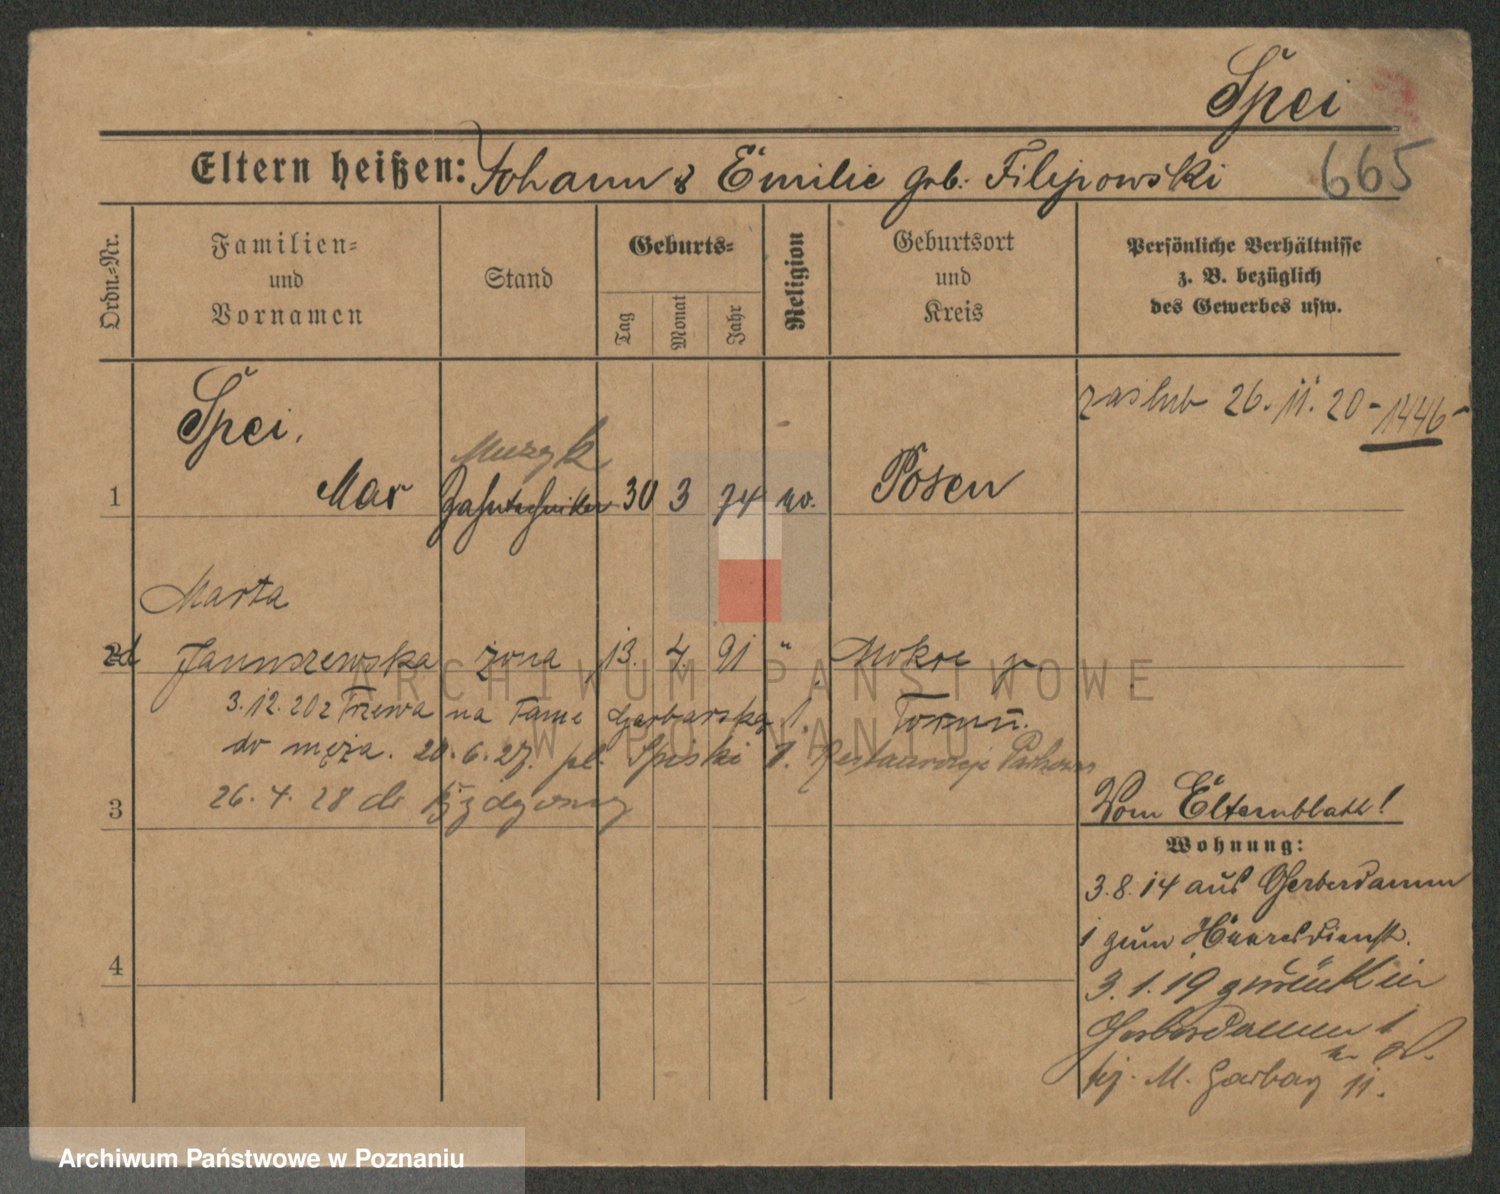 Spei
Eltern heißen: Johann & Emilie geb. Filipowski
665
Ordn.=Nr.
Familien=
und
Vornamen
Stand
Geburts=
Tag
Monat
Jahr
Religion
Geburtsort
und
Kreis
Persönliche Verhältnisse
z. B. bezüglich
des Gewerbes usw.
zaslub 26. 11. 20 - 1446 -
Spei,
Muzyk
1 Max Zahntechniker 30 3 94 Posen
Marta
2 Januszewska żona 13. 4. 91 " Mokre p
3.12.20 z Trzewa na Tame Garbarską 1. Toruń.
do męża. 20.6.27. pl. Spiski 1. Restauracje
3 26.4.28 do Bydgoszcz
Vom Elternblatt!
Wohnung:
3.8.14 aus Gerberdamm
1 zum Heeresdienst.
4
3.1.19 zurück in
Gerberdamm 1
M. Garbary 11.
ARCHIWUM PAŃSTWOWE
W POZNANIU
Archiwum Państwowe w Poznaniu